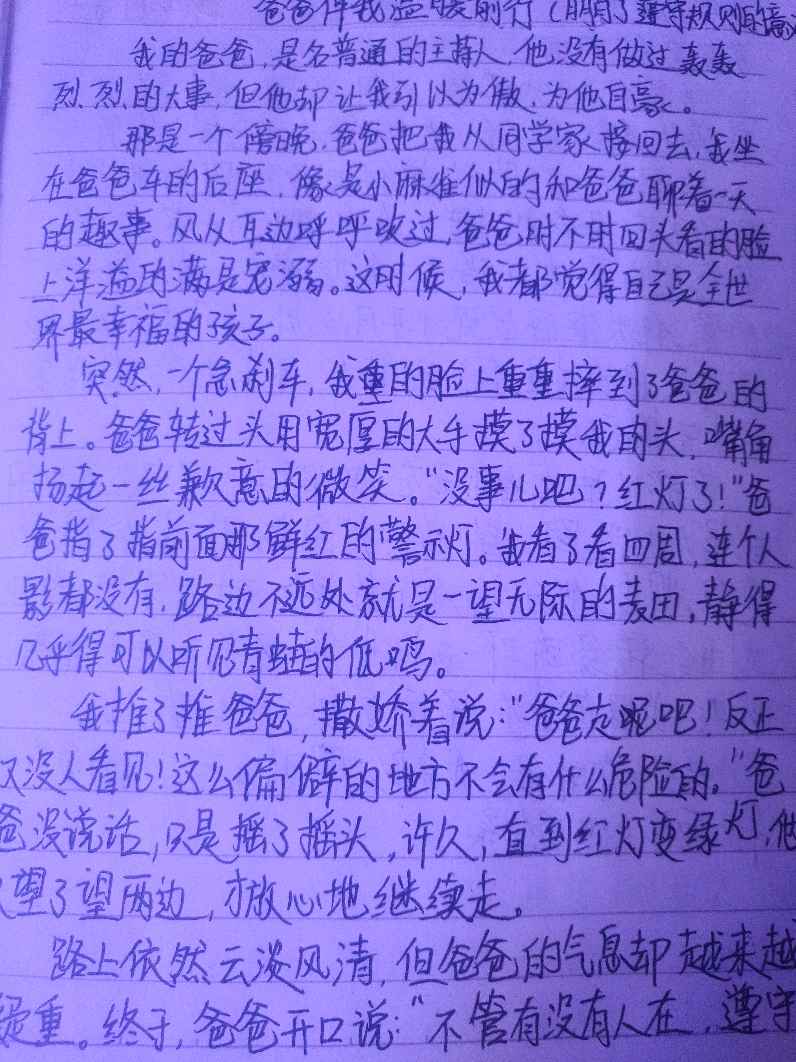 爸爸伴我温暖前行（明了遵守规则的意
我的爸爸，是名普通的主持人，他没有做过轰轰
烈烈的大事，但他却让我引以为傲，为他自豪。
那是一个傍晚，爸爸把我从同学家接回去，我坐
在爸爸车的后座，像是小麻雀似的和爸爸聊着一天
的趣事。风从耳边呼呼吹过，爸爸时不时回头看的脸
上洋溢的满是宠溺。这时候，我都觉得自己是全世
界最幸福的孩子。
突然，一个急刹车，我重的脸上重重摔到了爸爸的
背上。爸爸转过头用宽厚的大手摸了摸我的头，嘴角
扬起一丝歉意的微笑。“没事儿吧？红灯了！”爸
爸指了指前面那鲜红的警示灯。我看了看四周，连个人
影都没有，路边不远处就是一望无际的麦田，静得
几乎得可以听见青蛙的低鸣。
我推了推爸爸，撒娇着说：“爸爸走呢吧！反正
又没人看见！这么偏僻的地方不会有什么危险的。”爸
爸没说话，只是摇了摇头，许久，直到红灯变绿灯，他
又望了望两边，才放心地继续走。
路上依然云淡风清，但爸爸的气息却越来越
凝重。终于，爸爸开口说：“不管有没有人在，遵守